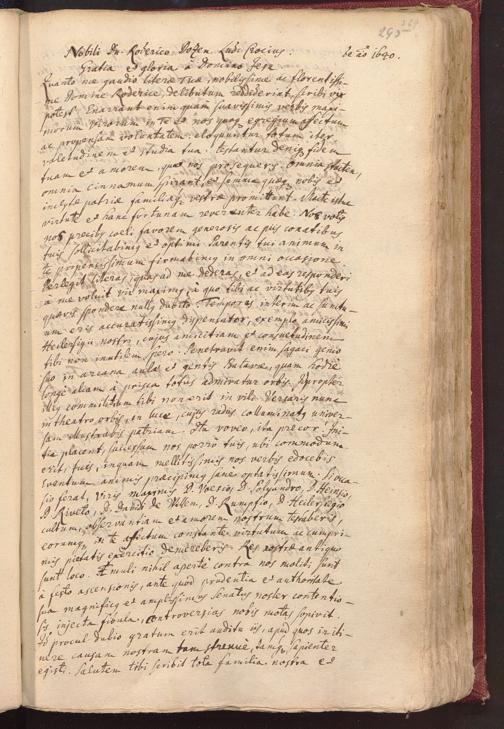 295
Nobili Dn. Roderico Dotzen Lud. Crocius. de ao 1640.
Gratia et gloria à Domino Jesu
Quanto me gaudio literæ tuæ, nobilissime ac florentissi-
me Domine Roderice, delibutum reddiderint scribi vix
potest. Enarrant enim quam suavissimis verbis maxi-
morum virorum in te et nos quoq egregium affectum
ac propensam voluntatem: eloquuntur totum iter
valetudinem et studia tua: testantur deniq fidem
tuam et amorem, quo nos prosequeris. Omnia
omnia cinnamum spirant, et quæq nobis et
inclytæ patriæ familiæq vestræ promittunt. Macte istac
virtute et hanc fortunam reverenter habe. Nos votis
nos precibus coeli favorem generosis ac piis conatibus
tuis sollicitabimus et optimi Parentis tui animum in
te propensissimum firmabimus in omni occasione.
Perlegit literas, quas ad me dederas, et ad eas responderi
à me voluit vir maximus, à quo tibi ac virtutibus tuis
quævis spondere nullus dubito. Temporis interim ac
um eris accuratissimus dispensator, exemplo amicissimi
nostri, cujus amicitiam et consuetudinem
tibi non inutilem spero. Penetravit enim sagaci genio
suo in arcana aulæ et gentis Batavæ, quam hodie
longe aliam à prisca totus admiratur orbis.
commilitium tibi non erit in vile. Versaris nunc
in theatro orbis, in luce, cujus radiis collumines univer-
sam illustrabis patriam. Ita voveo, ita precor. Ini-
tia placent, successum nos porro tuis, ubi commodum
erit, tuis, inquam mellitissimis nos verbis edocebis
eventum animis præcipimus sane optatissimum. Si oca-
sio ferat, viris maximis D. Voetio, D. Polyandro, D. Heinsio,
D. Riveto, D. David de Willem, D. Rumpfio, D.
cultum, observantiam et amorem nostrum testaberis,
eorumq in te affectum constante virtutum ac cumpri-
mis pietatis exercitio demereberis. Res nostræ antiquo
sunt loco. Æmuli nihil aperte contra nos moliti sunt
à festo ascensionis, ante quod prudentia et authoritate
sua magnificus et amplissimus Senatus noster contentio-
sis, injecta fibula, controversias nobis motas sopivit.
Id procul dubio gratum erit auditu iis, apud quos in iti-
nere causam nostram tam strenue, tamq sapienter
egisti. Salutem tibi scribit tota familia nostra et